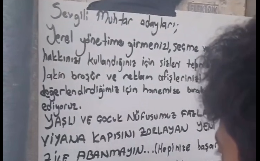 Sevgili Muhtar adayları;
Yerel yönetime girmeniz, seçme
hakkınızı kullandığınız için sizleri
lakin broşür ve reklam afişlerinizi
değerlendirdiğimiz için hanemize
ediyoruz.
YAŞLI VE ÇOCUK NÜFUSUMUZ
VİYANA KAPISINI ZORLAYAN
ZİLE ABANMAYIN...(Hepinize